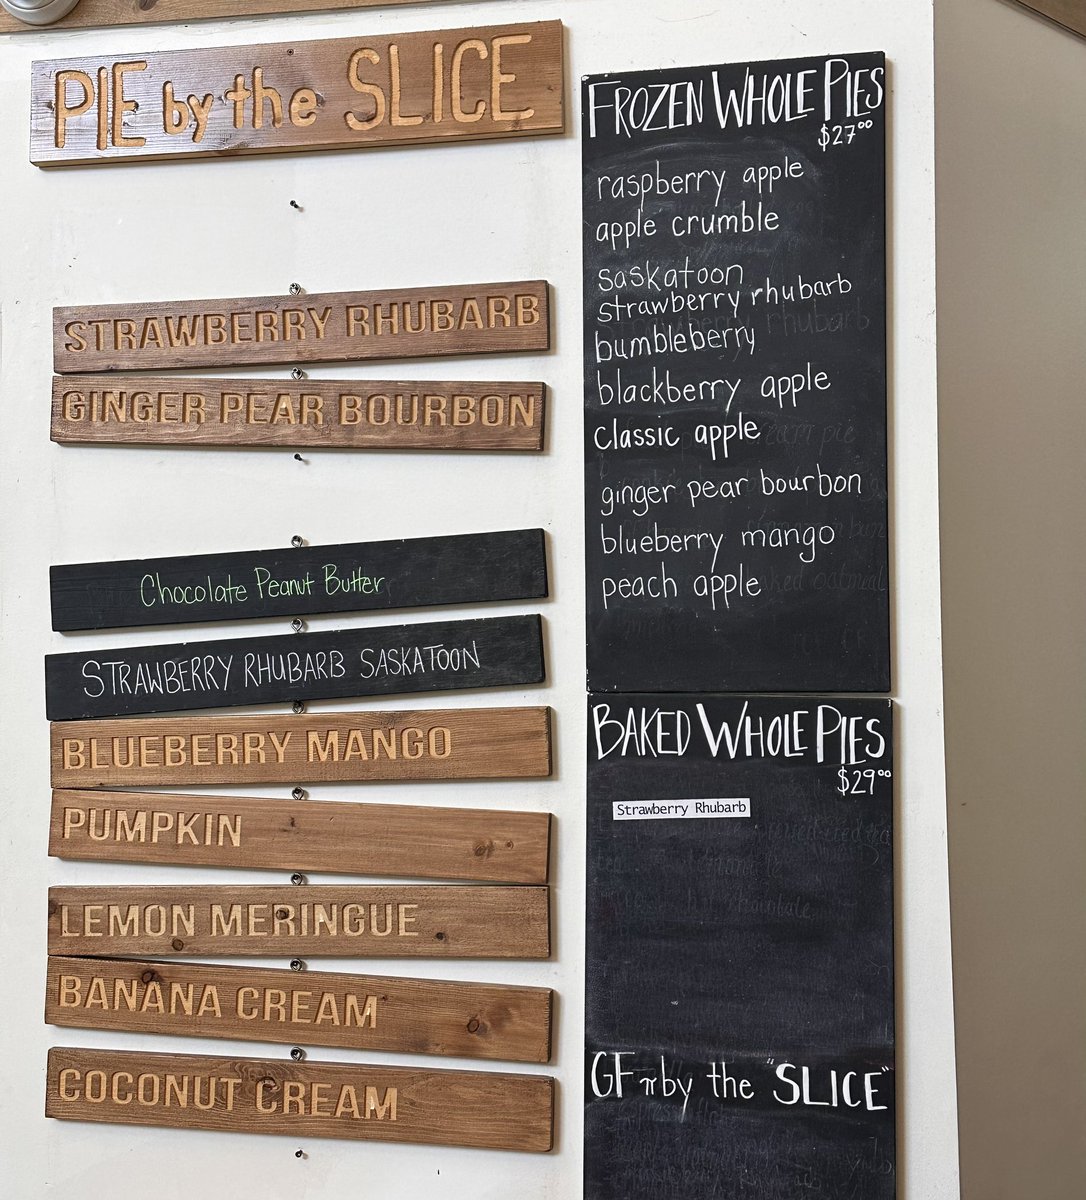 PIE by the SLICE
STRAWBERRY RHUBARB
GINGER PEAR BOURBON
Chocolate Peanut Butter
STRAWBERRY RHUBARB SASKATOON
BLUEBERRY MANGO
PUMPKIN
LEMON MERINGUE
BANANA CREAM
COCONUT CREAM
FROZEN WHOLE PIES
$27.00
raspberry apple
apple crumble
saskatoon
strawberry rhubarb
bumbleberry
blackberry apple
classic apple
ginger pear bourbon
blueberry mango
peach apple
BAKED WHOLE PIES
$29.00
Strawberry Rhubarb
GF π by the "SLICE"